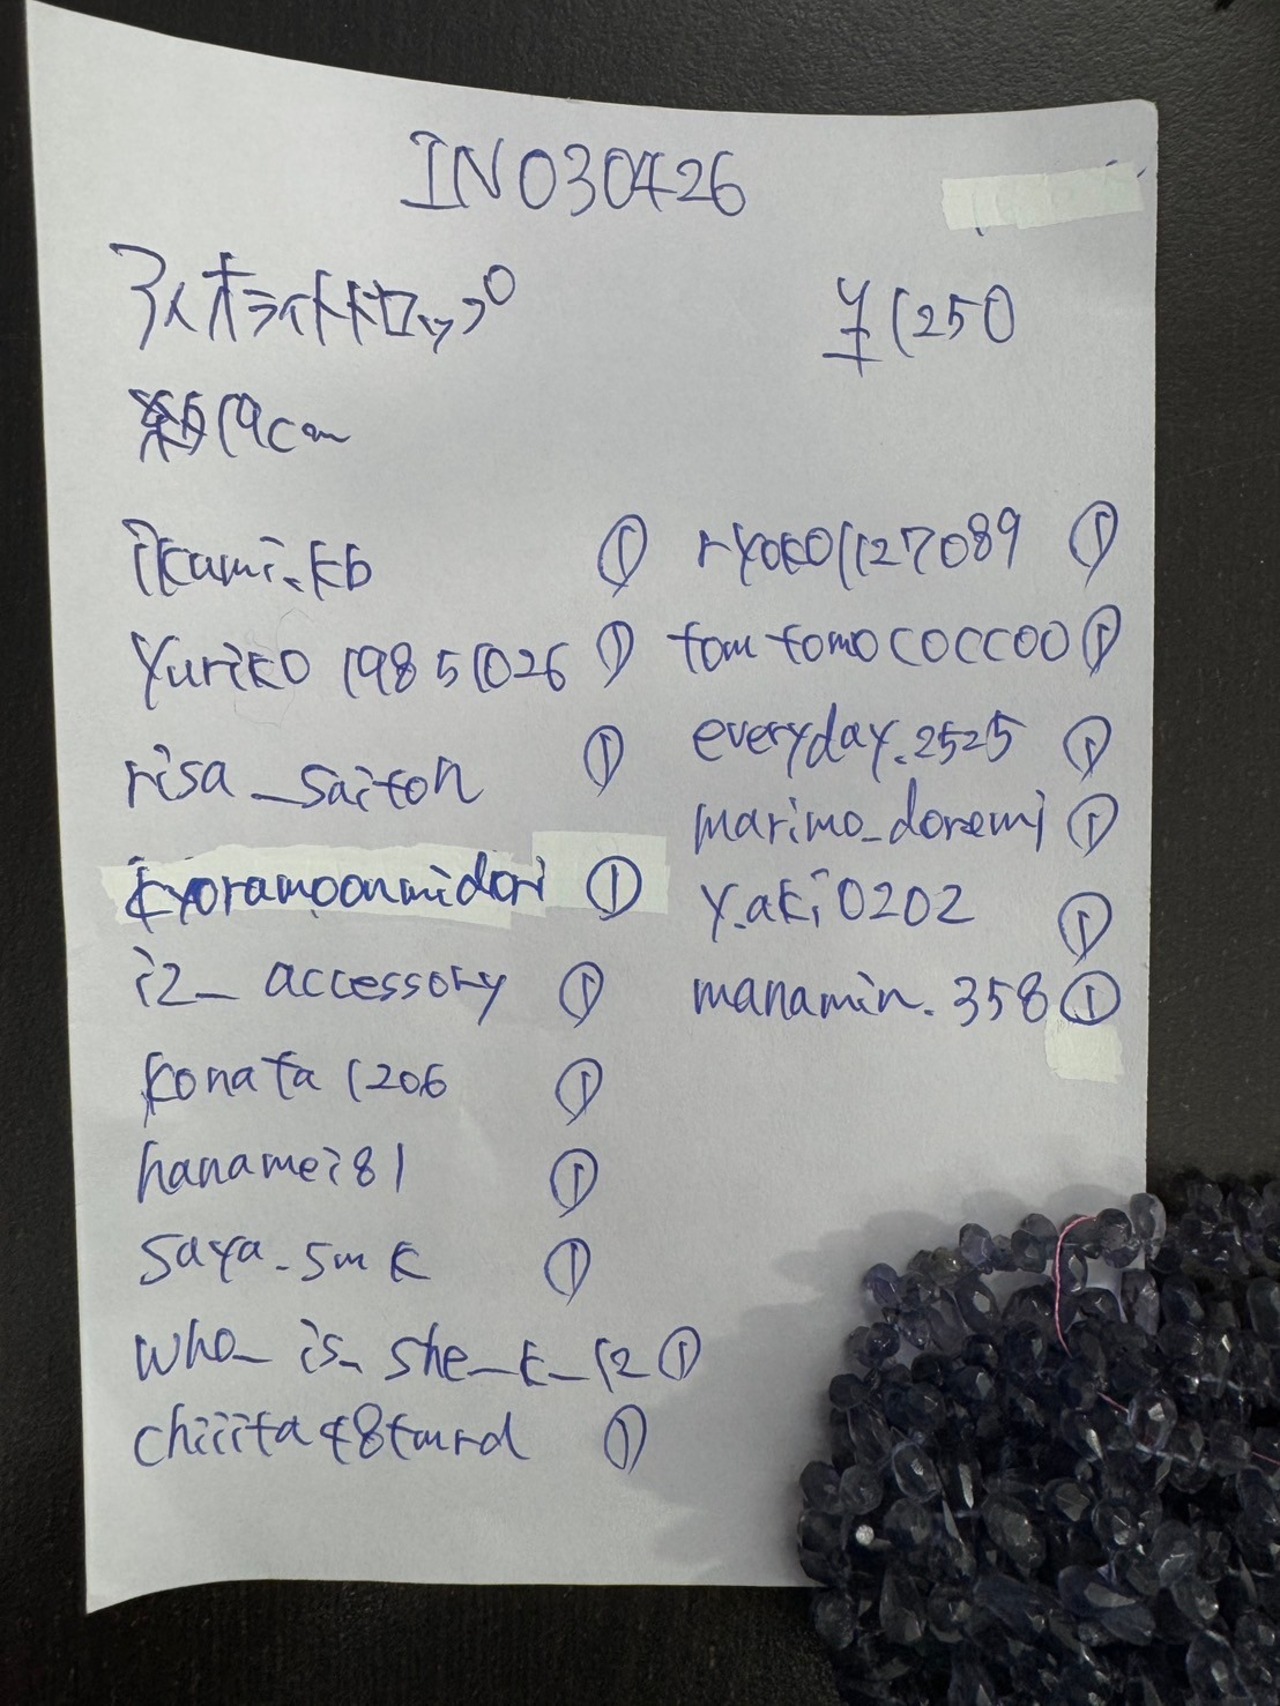 IN030426
アイオライトドロップ
¥1250
約19cm
ikami.kb ①
yuriko19851026 ①
risa_saitoh ①
kyoramoonmidori ①
i2_accessory ①
konata1206 ①
hanamei81 ①
saya.smk ①
who_is_she_k_12 ①
chiiita48tmrd ①
ryoko1127089 ①
tomtomococcoo ①
everyday.2525 ①
marimo_doremi ①
y.aki0202 ①
manamin.358 ①